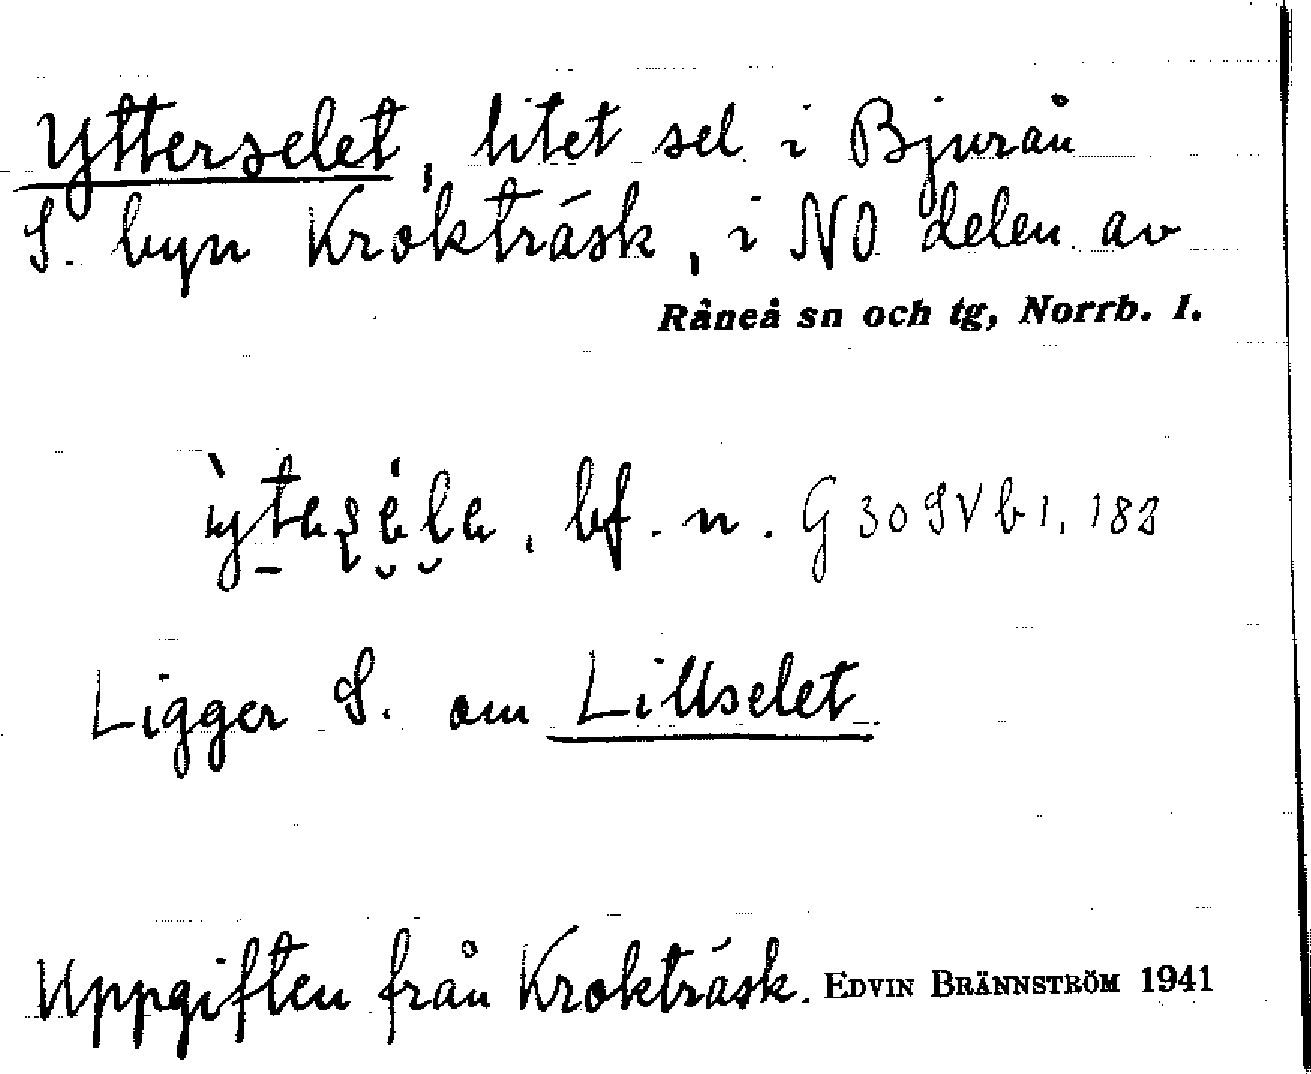 Ytterselet, litet sel i Bjurån
S. byn Kroktråsk, i NO delen av
Råneå sn och tg, Norrb. l.
bf. n. G 30 SV b 1, 183
Ligger S. om Lillselet
Uppgiften från Kroktråsk. EDVIN BRÄNNSTRÖM 1941